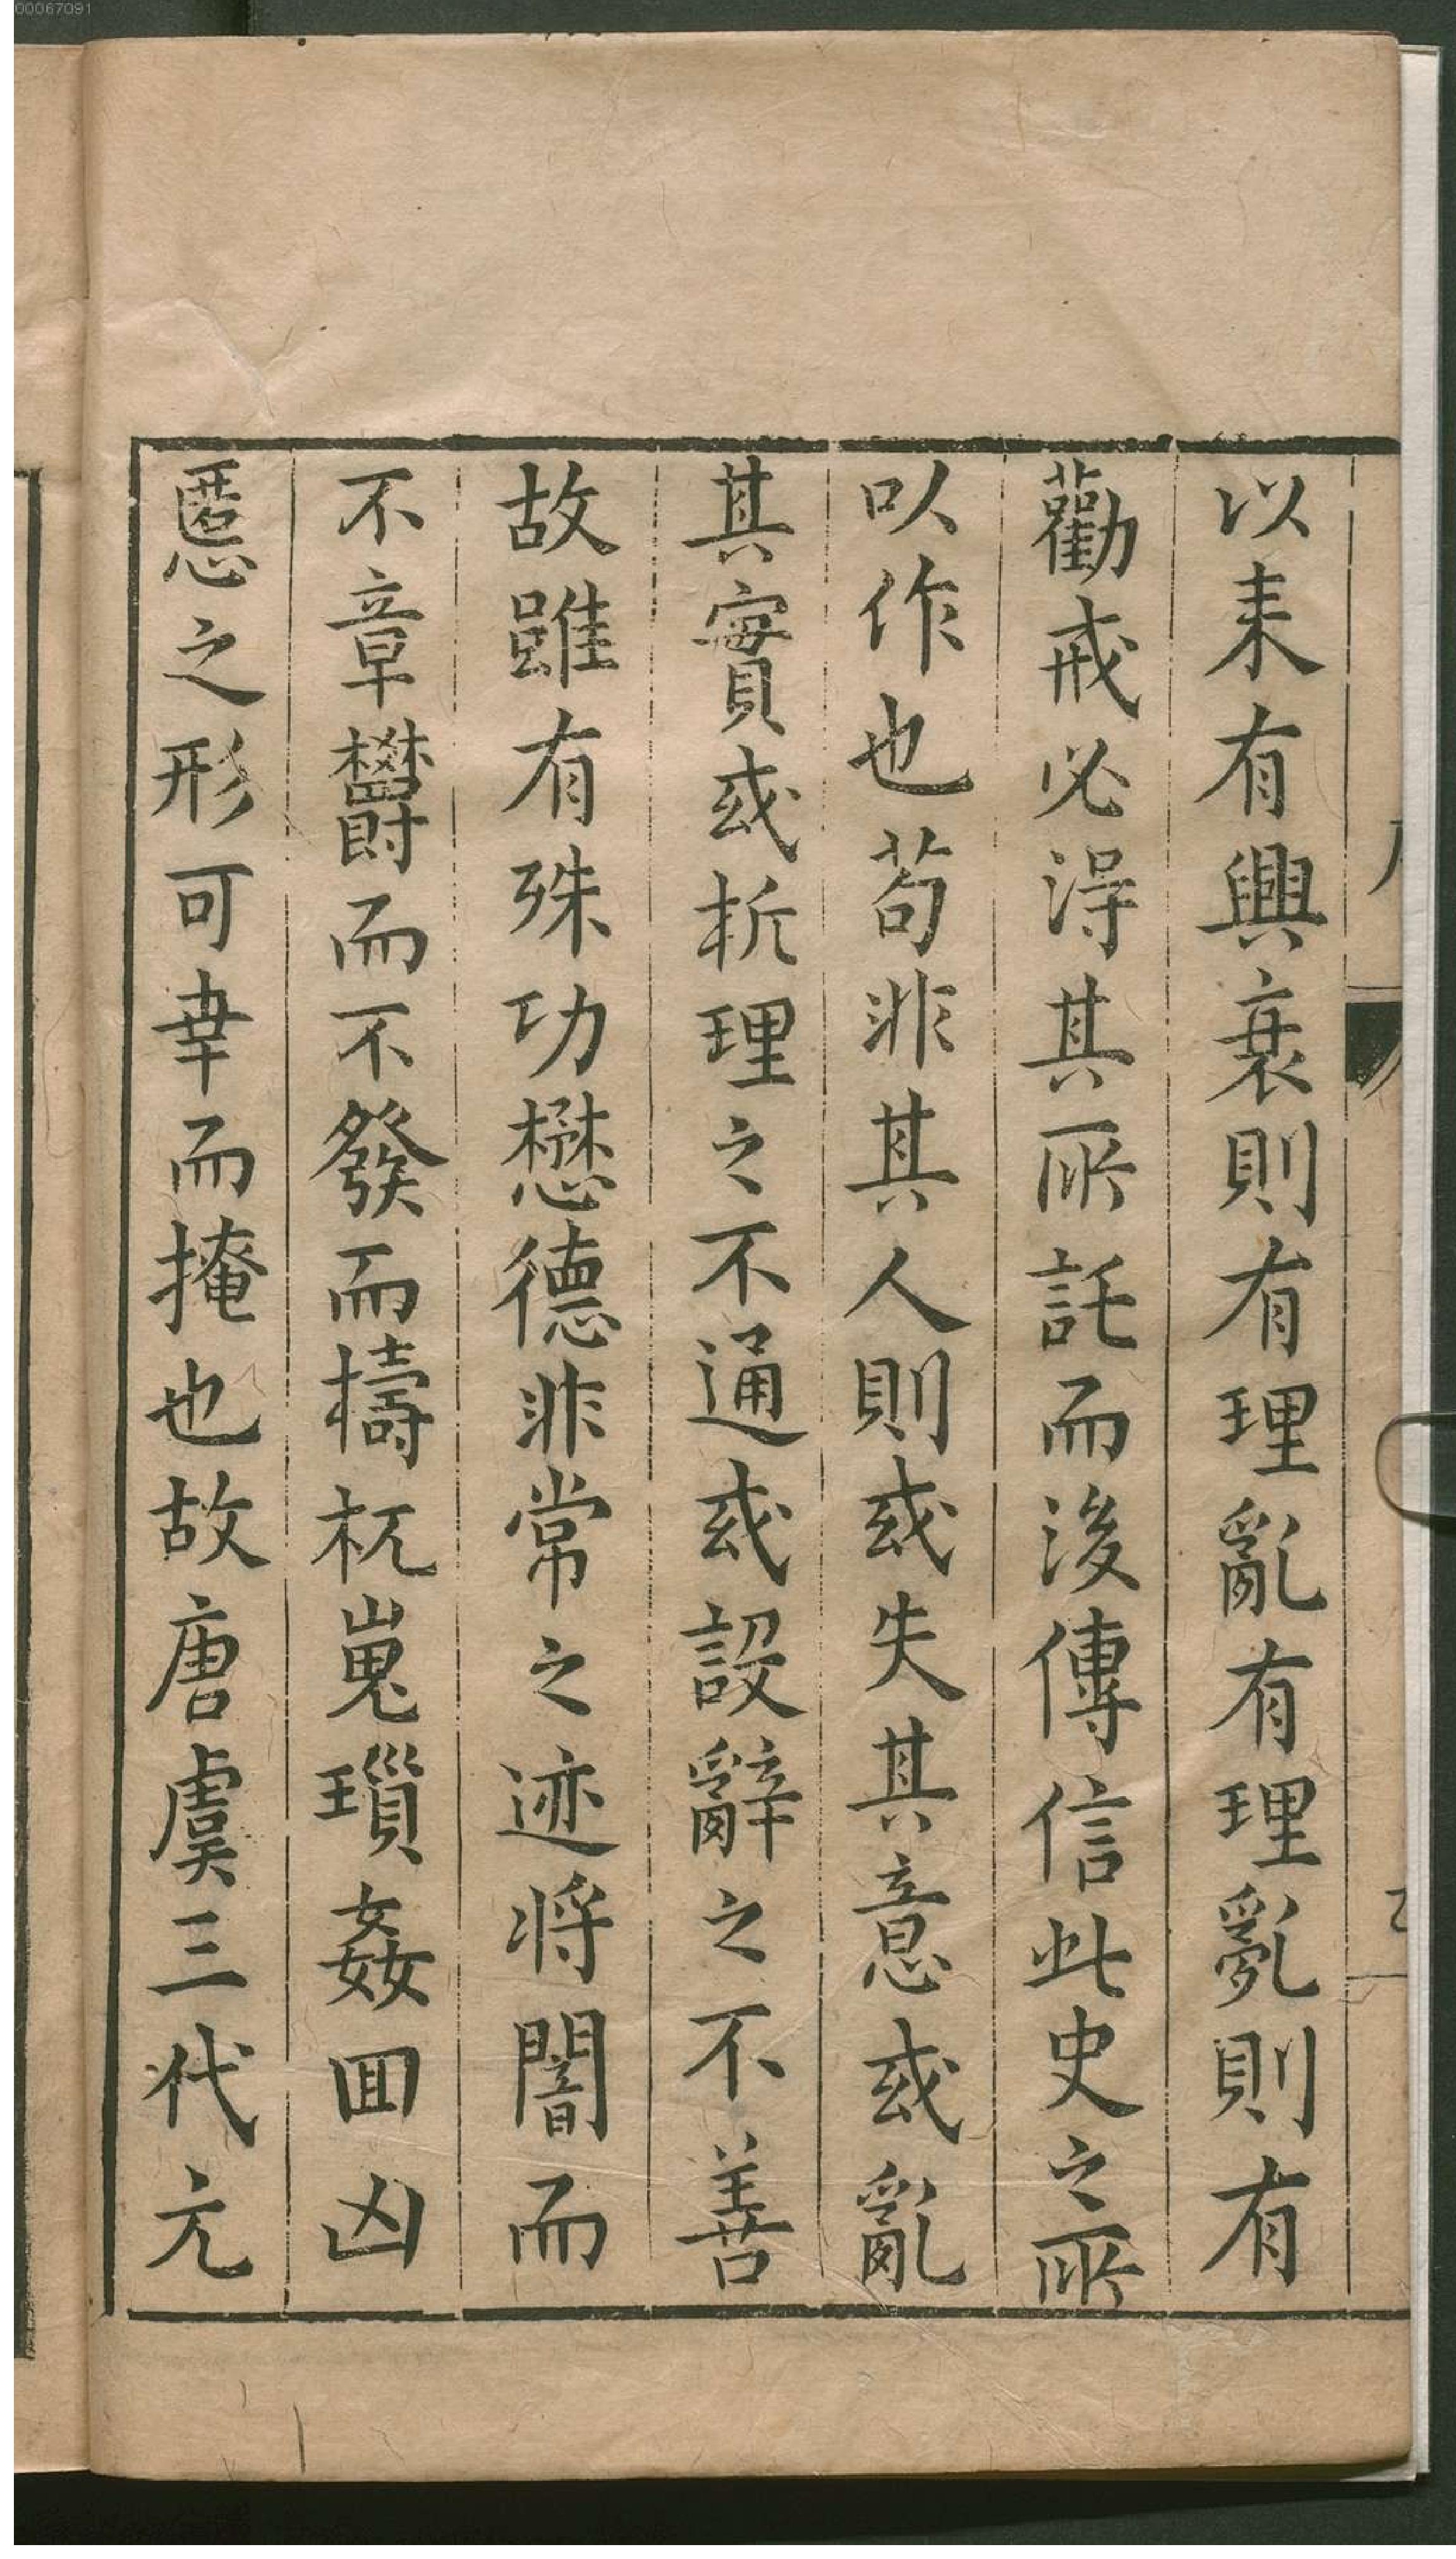 00067091
以耒有興衰則有理亂有理亂則有
勸戒必淂其所託而後傳信此史之所
以作也苟非其人則或失其意或亂
其實或析理之不通或設辭之不善
故雖有殊功懋德非常之迹將闇而
不章鬱而不發而檮杌嵬瑣姦回凶
慝之形可幸而掩也故唐虞三代元